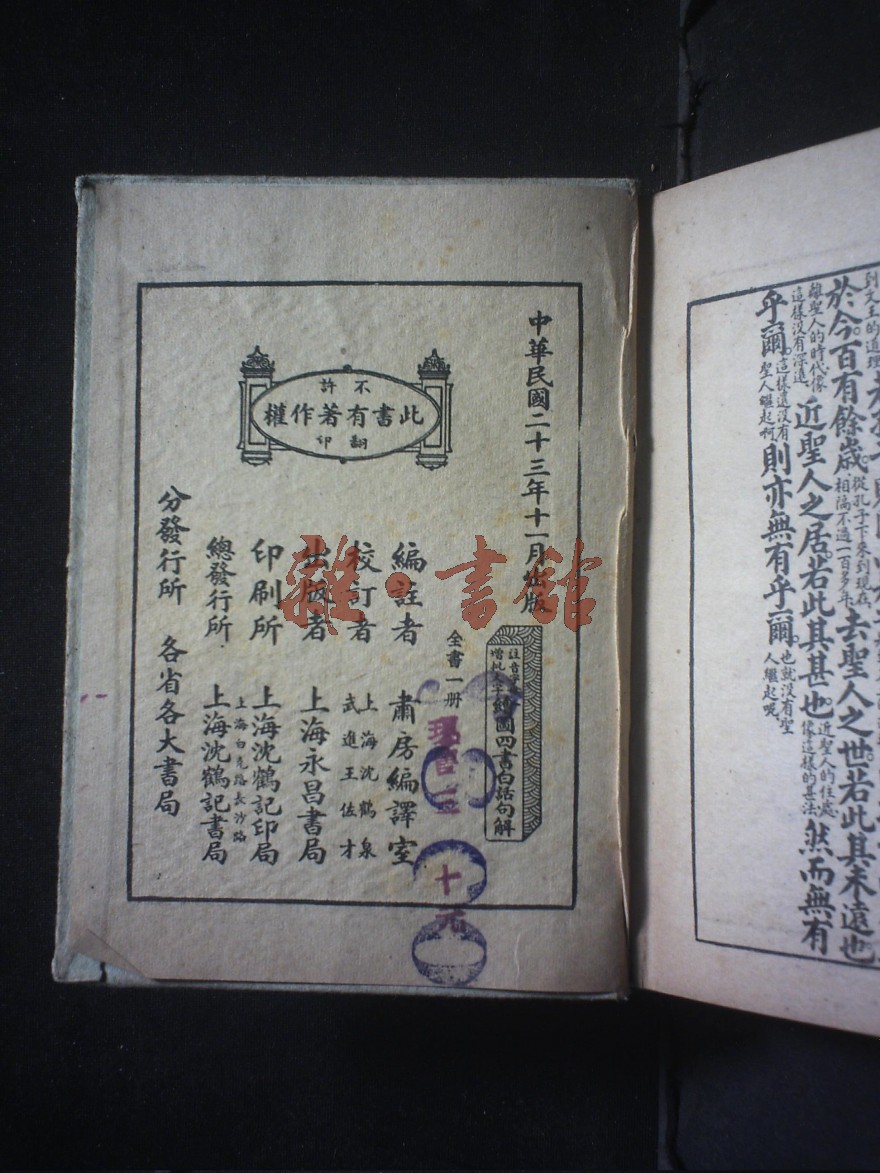 到文王的道理
於今百有餘歲從孔子下來到現在相隔不過一百多年去聖人之世若此其未遠也
離聖人的時代像這樣沒有深遠近聖人之居若此其甚也近聖人的住處像這樣的甚法然而無有
乎爾這樣還沒有聖人繼起呵則亦無有乎爾也就沒有聖人繼起呢
中華民國二十三年十一月出版
註音字
增批
繪圖四書白話句解
全書一册
不許
此書有著作權
翻印
編註者 肅房編譯室
校訂者 上海沈鶴泉
武進王佐才
出版者 上海永昌書局
印刷所 上海沈鶴記印局
上海白克路長沙路
總發行所 上海沈鶴記書局
分發行所 各省各大書局
十元
雜·書館